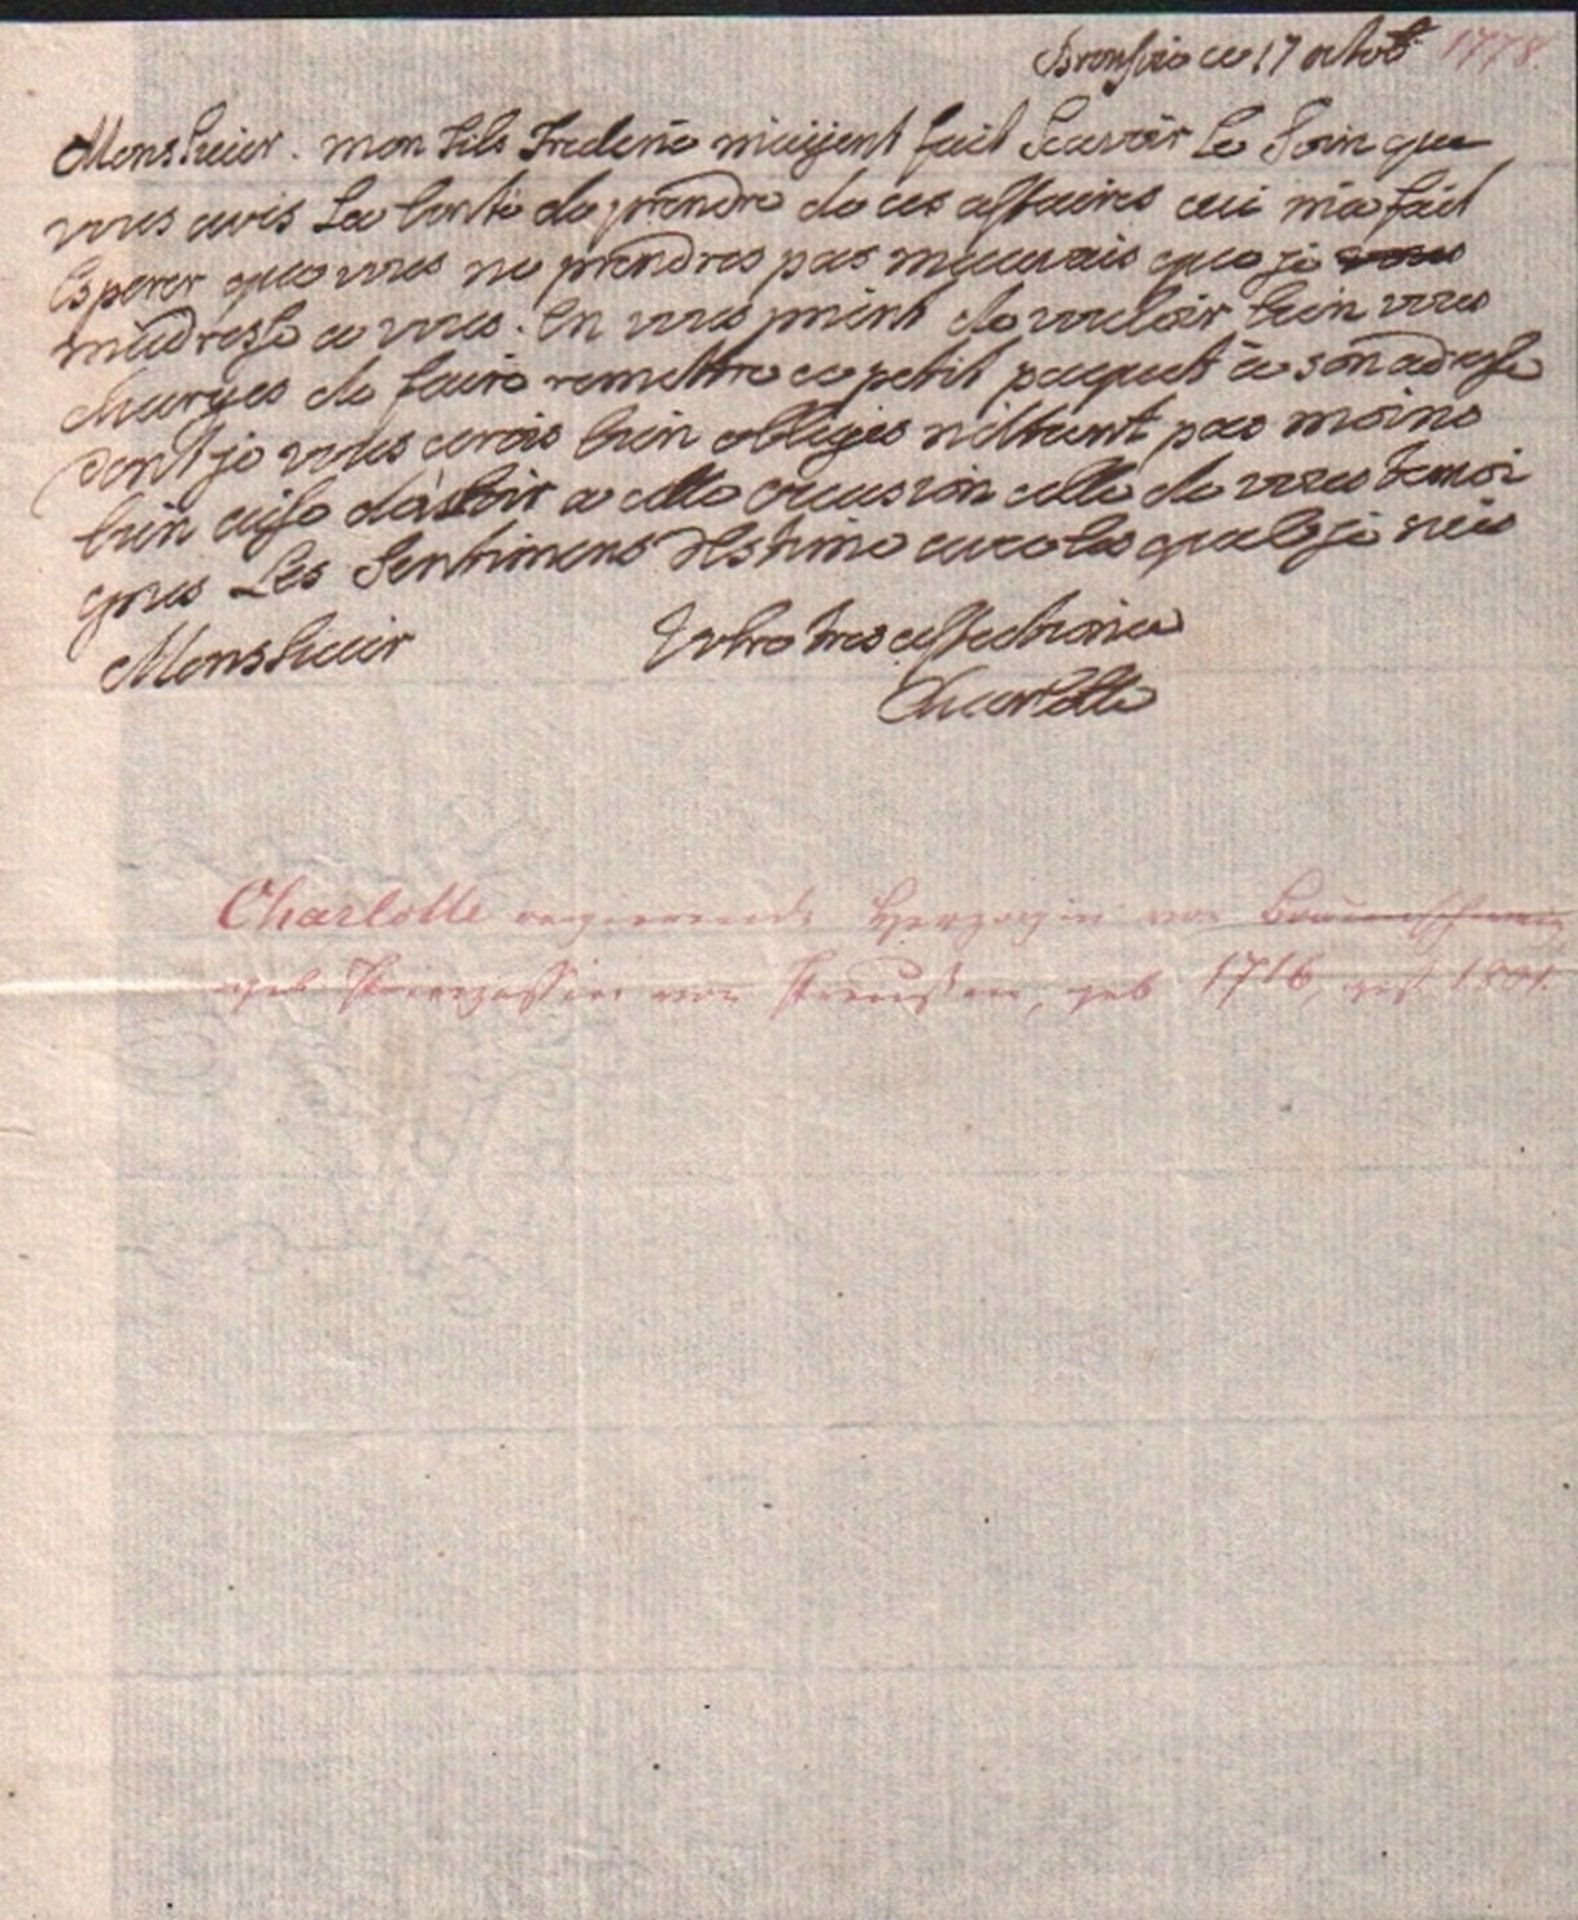 Bronsvic ce 17 octob: 1778.
Monsieuer. mon Fils Frederic m'aijent fait Scavoir Le Soin que
vous avés La bonté de prendre de ces affaires cei m'a fait
Esperer que vous ne prendres pas mauvais que je vous
m'adresse a vous. En vous prient de vouloir bien vous
charges de faire remettre ce petit paquet à son adresse
dont je vous serois bien obliges n'ettant pas moins
bien aise d'avoir a cette occasion celle de vous temoi
gnes Les Sentimens d'Estime avec les quels je suis
Monsieuer Votre tres affectionée
Charlotte
Charlotte regierende Herzogin von Braunschweig
geb Prinzessin von Preußen, geb 1716, gest 1801.